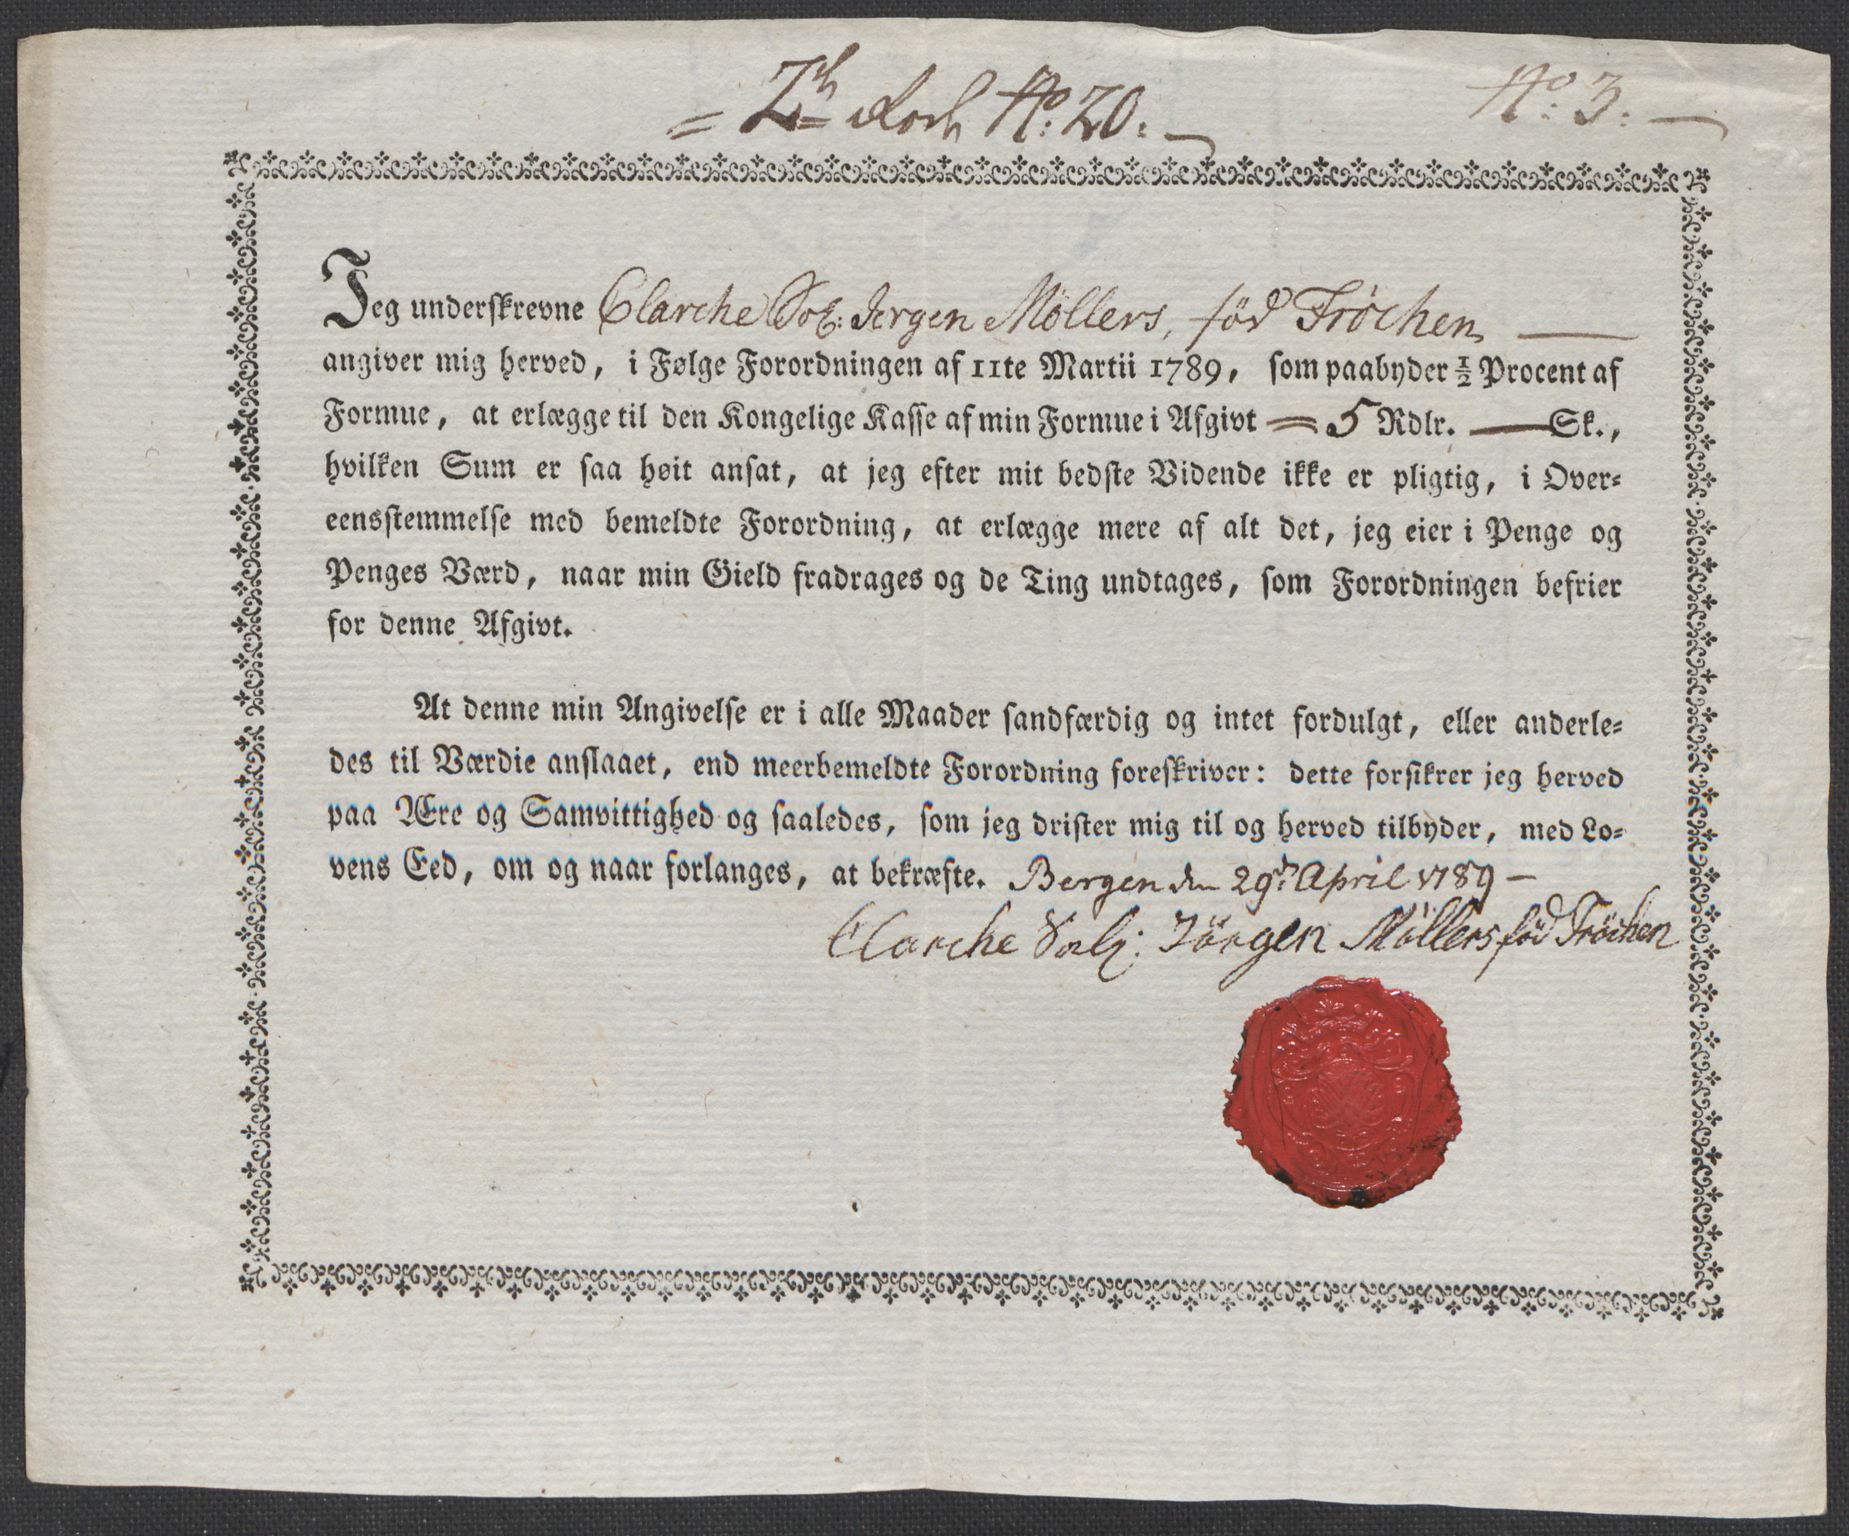 No: 20. No: 3.
Jeg underskrevne Clarche Sal: Jørgen Møllers, fød Frøchen
angiver mig herved, i Følge Forordningen af 11te Martii 1789, som paabyder ½ Procent af
Formue, at erlægge til den Kongelige Kasse af min Formue i Afgivt = 5 Rdlr. — Sk.,
hvilken Sum er saa høit ansat, at jeg efter mit bedste Vidende ikke er pligtig, i Over-
eensstemmelse med bemeldte Forordning, at erlægge mere af alt det, jeg eier i Penge og
Penges Værd, naar min Gield fradrages og de Ting undtages, som Forordningen befrier
for denne Afgivt.
At denne min Angivelse er i alle Maader sandfærdig og intet fordulgt, eller anderle-
des til Værdie anslaaet, end meerbemeldte Forordning foreskriver: dette forsikrer jeg herved
paa Ære og Samvittighed og saaledes, som jeg drister mig til og herved tilbyder, med Lo-
vens Eed, om og naar forlanges, at bekræfte. Bergen den 29de April 1789 —
Clarche Salg: Jörgen Möllers föd Fröchen